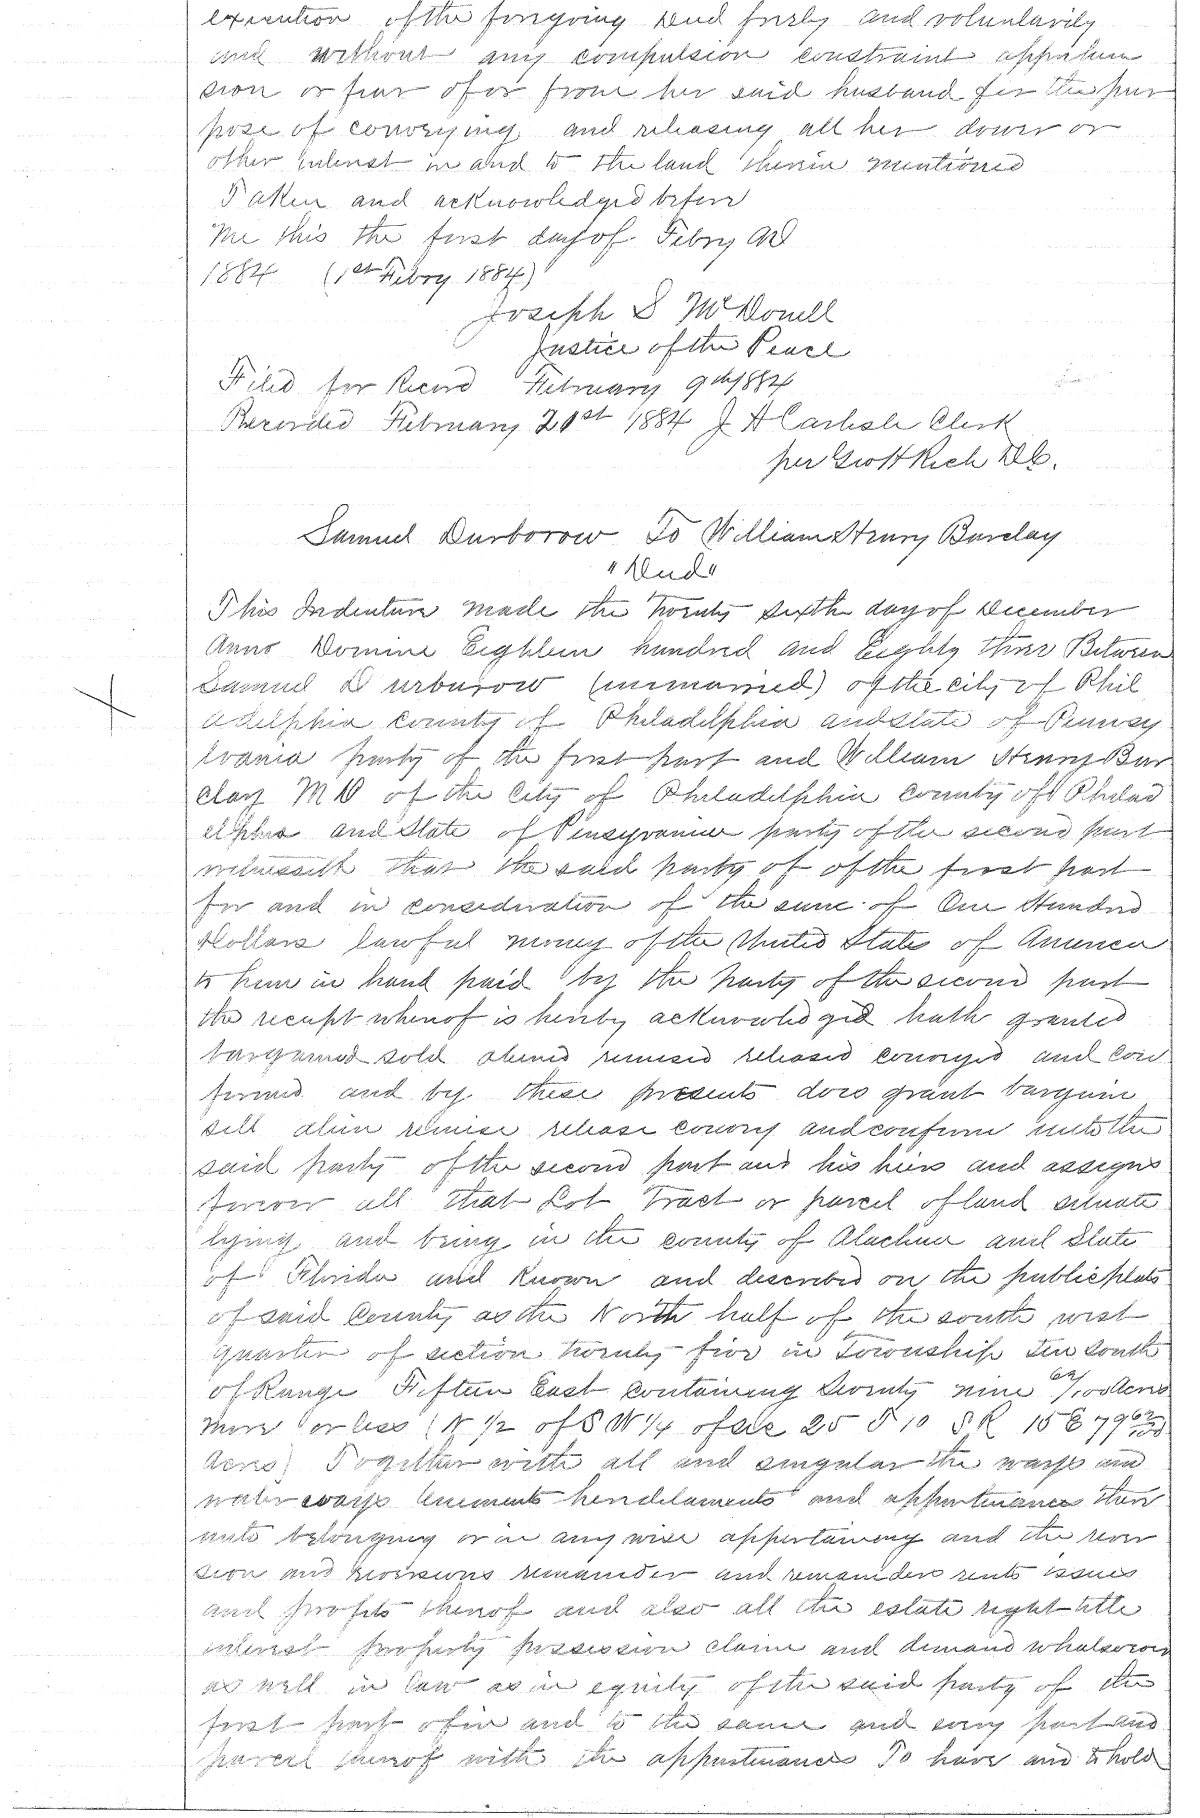 execution of the foregoing Deed freely and voluntarily
and without any compulsion constraint apprehen
sion or fear of or from her said husband for the pur
pose of conveying and releasing all her dower or
other interest in and to the land therein mentioned
Taken and acknowledged before
me this the first day of Febry AD
1884 (1st Febry 1884)
Joseph S McDonell
Justice of the Peace
Filed for Record February 9th 1884
Recorded February 21st 1884 J H Carlisle Clerk
per Geo H Rich D.C.
Samuel Durborow To William Henry Barclay
"Deed"
This Indenture made the twenty sixth day of December
Anno Domine Eighteen hundred and Eighty three Between
Samuel Durburow (unmarried) of the city of Phil
adelphia county of Philadelphia and State of Pennsy
lvania party of the first part and William Henry Bar
clay MD of the City of Philadelphia county of Philad
elphia and State of Pensyvania party of the second part
witnesseth that the said party of of the first part
for and in consideration of the sum of One Hundred
Dollars lawful money of the United States of America
to him in hand paid by the party of the second part
the receipt whereof is hereby acknowledged hath granted
bargained sold aliened remised released conveyed and con
firmed and by these presents does grant bargain
sell alien remise release convey and confirm unto the
said party of the second part and his heirs and assigns
forever all that Lot Tract or parcel of land situate
lying and being in the county of Alachua and State
of Florida and known and described on the public plats
of said County as the North half of the south west
quarter of section twenty five in Township Ten South
of Range Fifteen East containing Seventy nine 62/100 Acres
more or less (N 1/2 of S W 1/4 of Sec 25 T 10 S R 15 E 79 62/100
Acres) Together with all and singular the ways and
water ways tenements hereditaments and appurtenances there
unto belonging or in any wise appertaining and the rever
sion and reversions remainder and remainders rents issues
and profits thereof and also all the estate right title
interest property possession claim and demand whatsoever
as well in law as in equity of the said party of the
first part of in and to the same and every part and
parcel thereof with the appurtenances To have and to hold